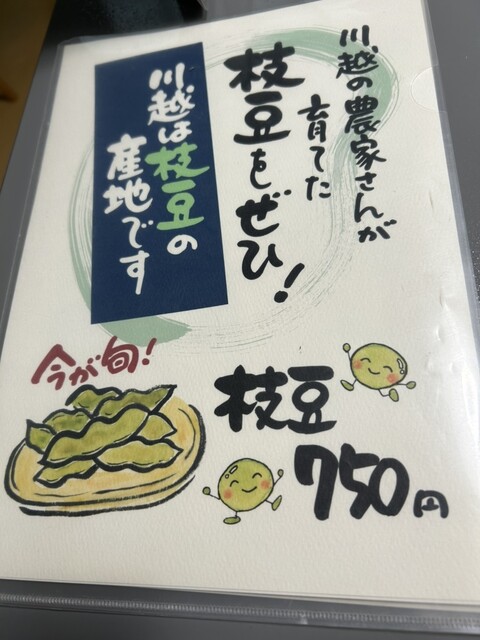 川越の農家さんが
育てた
枝豆をぜひ!
川越は枝豆の
産地です
今が旬!
枝豆
750円